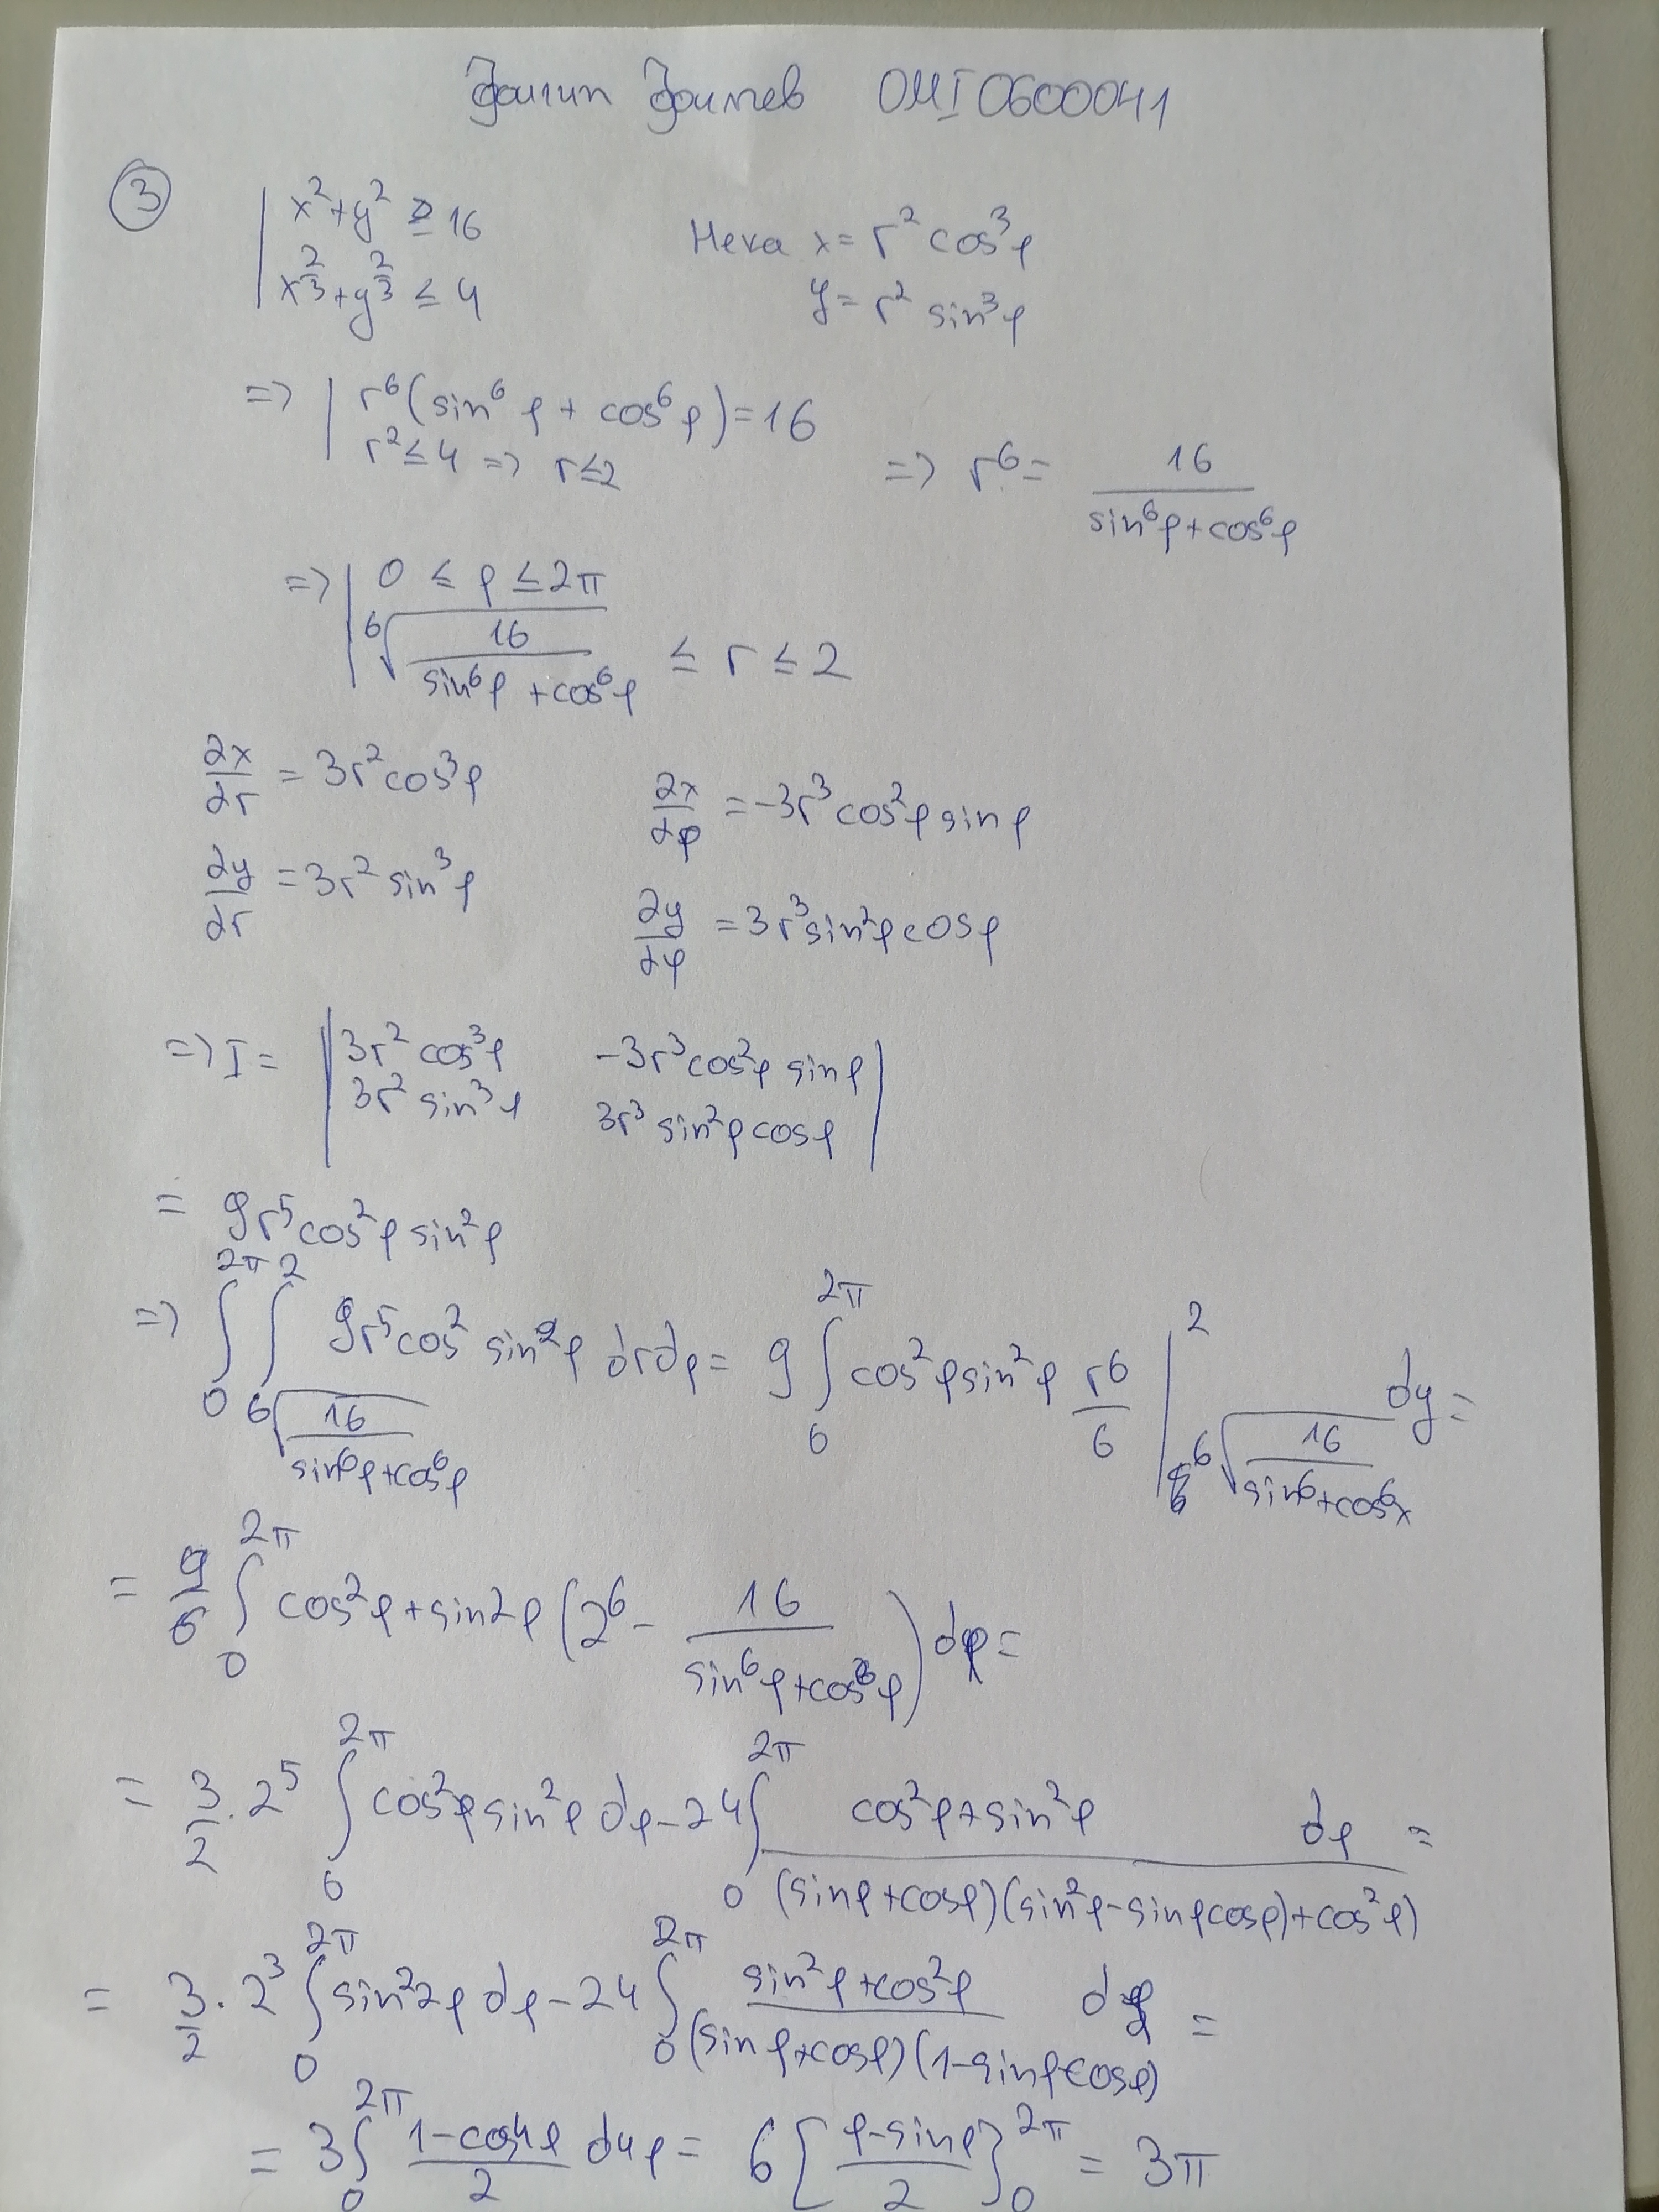 Филип Филчев 0MI0600041
③ | x²+y² ≥ 16 Нека x = r² cos³φ
| x^(2/3)+y^(2/3) ≤ 4 y = r² sin³φ
=> | r⁶(sin⁶φ + cos⁶φ) = 16
| r² ≤ 4 => r ≤ 2 => r⁶ = 16/(sin⁶φ+cos⁶φ)
=> | 0 ≤ φ ≤ 2π
| ⁶√(16/(sin⁶φ+cos⁶φ)) ≤ r ≤ 2
∂x/∂r = 3r²cos³φ ∂x/∂φ = -3r³cos²φ sinφ
∂y/∂r = 3r² sin³φ ∂y/∂φ = 3r³sin²φcosφ
=> I = | 3r²cos³φ -3r³cos²φ sinφ |
| 3r² sin³φ 3r³ sin²φcosφ |
= 9r⁵cos²φ sin²φ
=> ∫_0^{2π} ∫_{⁶√(16/(sin⁶φ+cos⁶φ))}^2 9r⁵cos² sin²φ drdφ = 9 ∫_0^{2π} cos²φsin²φ r⁶/6 |_{⁶√(16/(sin⁶+cos⁶x))}^2 dy =
= 9/6 ∫_0^{2π} cos²φ+sin2φ (2⁶ - 16/(sin⁶φ+cos⁶φ)) dφ =
= 3/2 . 2⁵ ∫_0^{2π} cos²φ sin²φ dφ - 24 ∫_0^{2π} (cos²φ+sin²φ)/((sinφ+cosφ)(sin²φ-sinφcosφ)+cos²φ) dφ =
= 3/2 . 2³ ∫_0^{2π} sin²2φ dφ - 24 ∫_0^{2π} (sin²φ+cos²φ)/((sinφ+cosφ)(1-sinφcosφ)) dφ =
= 3 ∫_0^{2π} (1-cos4φ)/2 d4φ = 6 [(φ-sinφ)/2]_0^{2π} = 3π